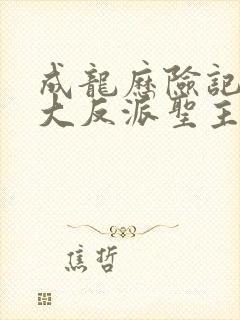 成龍歷險記
大反派聖主
焦哲